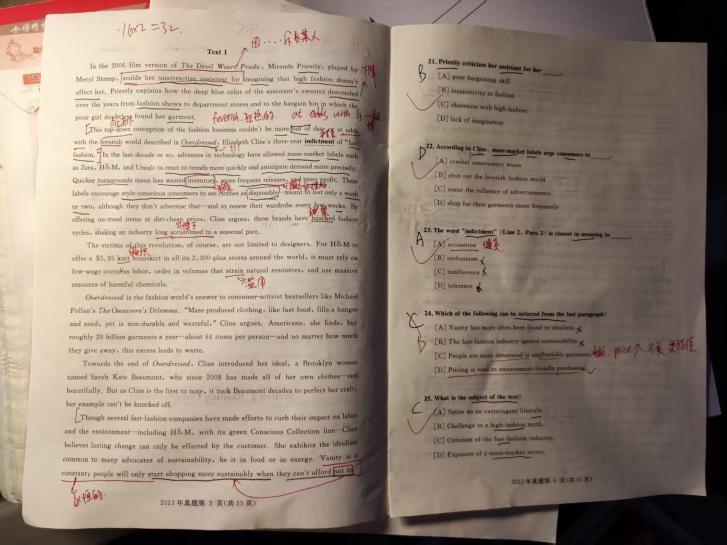 16×2=32
Text 1
In the 2006 film version of The Devil Wears Prada, Miranda Priestly, played by
Meryl Streep, scolds her unattractive assistant for imagining that high fashion doesn't
affect her. Priestly explains how the deep blue color of the assistant's sweater descended
over the years from fashion shows to department stores and to the bargain bin in which the
poor girl doubtless found her garment.
feverish, 狂热的. at odds with
This top-down conception of the fashion business couldn't be more out of date or at odds
with the feverish world described in Overdressed, Elizabeth Cline's three-year indictment of "fast
fashion." In the last decade or so, advances in technology have allowed mass-market labels such
as Zara, H&M, and Uniqlo to react to trends more quickly and anticipate demand more precisely.
Quicker turnarounds mean less wasted inventory, more frequent releases, and more profit. These
labels encourage style-conscious consumers to see clothes as disposable—meant to last only a wash
or two, although they don't advertise that—and to renew their wardrobe every few weeks. By
offering on-trend items at dirt-cheap prices, Cline argues, these brands have hijacked fashion
cycles, shaking an industry long accustomed to a seasonal pace.
The victims of this revolution, of course, are not limited to designers. For H&M to
offer a $5.95 knit miniskirt in all its 2,300-plus stores around the world, it must rely on
low-wage overseas labor, order in volumes that strain natural resources, and use massive
amounts of harmful chemicals.
Overdressed is the fashion world's answer to consumer-activist bestsellers like Michael
Pollan's The Omnivore's Dilemma. "Mass-produced clothing, like fast food, fills a hunger
and need, yet is non-durable and wasteful," Cline argues. Americans, she finds, buy
roughly 20 billion garments a year—about 64 items per person—and no matter how much
they give away, this excess leads to waste.
Towards the end of Overdressed, Cline introduced her ideal, a Brooklyn woman
named Sarah Kate Beaumont, who since 2008 has made all of her own clothes—and
beautifully. But as Cline is the first to note, it took Beaumont decades to perfect her craft;
her example can't be knocked off.
Though several fast-fashion companies have made efforts to curb their impact on labor
and the environment—including H&M, with its green Conscious Collection line—Cline
believes lasting change can only be effected by the customer. She exhibits the idealism
common to many advocates of sustainability, be it in food or in energy. Vanity is a
constant; people will only start shopping more sustainably when they can't afford not to.
永恒的.
2013年真题第 3 页(共15页)
21. Priestly criticizes her assistant for her ____
B [A] poor bargaining skill
[B] insensitivity to fashion
[C] obsession with high fashion
[D] lack of imagination
22. According to Cline, mass-market labels urge consumers to ____
D [A] combat unnecessary waste
[B] shut out the feverish fashion world
[C] resist the influence of advertisements
[D] shop for their garments more frequently
23. The word "indictment" (Line 2, Para. 2) is closest in meaning to ____
A [A] accusation
[B] enthusiasm
[C] indifference
[D] tolerance
24. Which of the following can be inferred from the last paragraph?
C [A] Vanity has more often been found in idealists.
B [B] The fast-fashion industry against sustainability.
[C] People are more interested in unaffordable garments.
[D] Pricing is vital to environment-friendly purchasing.
25. What is the subject of the text?
C [A] Satire on an extravagant lifestyle.
[B] Challenge to a high-fashion myth.
[C] Criticism of the fast-fashion industry.
[D] Exposure of a mass-market secret.
2013年真题第 4 页(共15页)